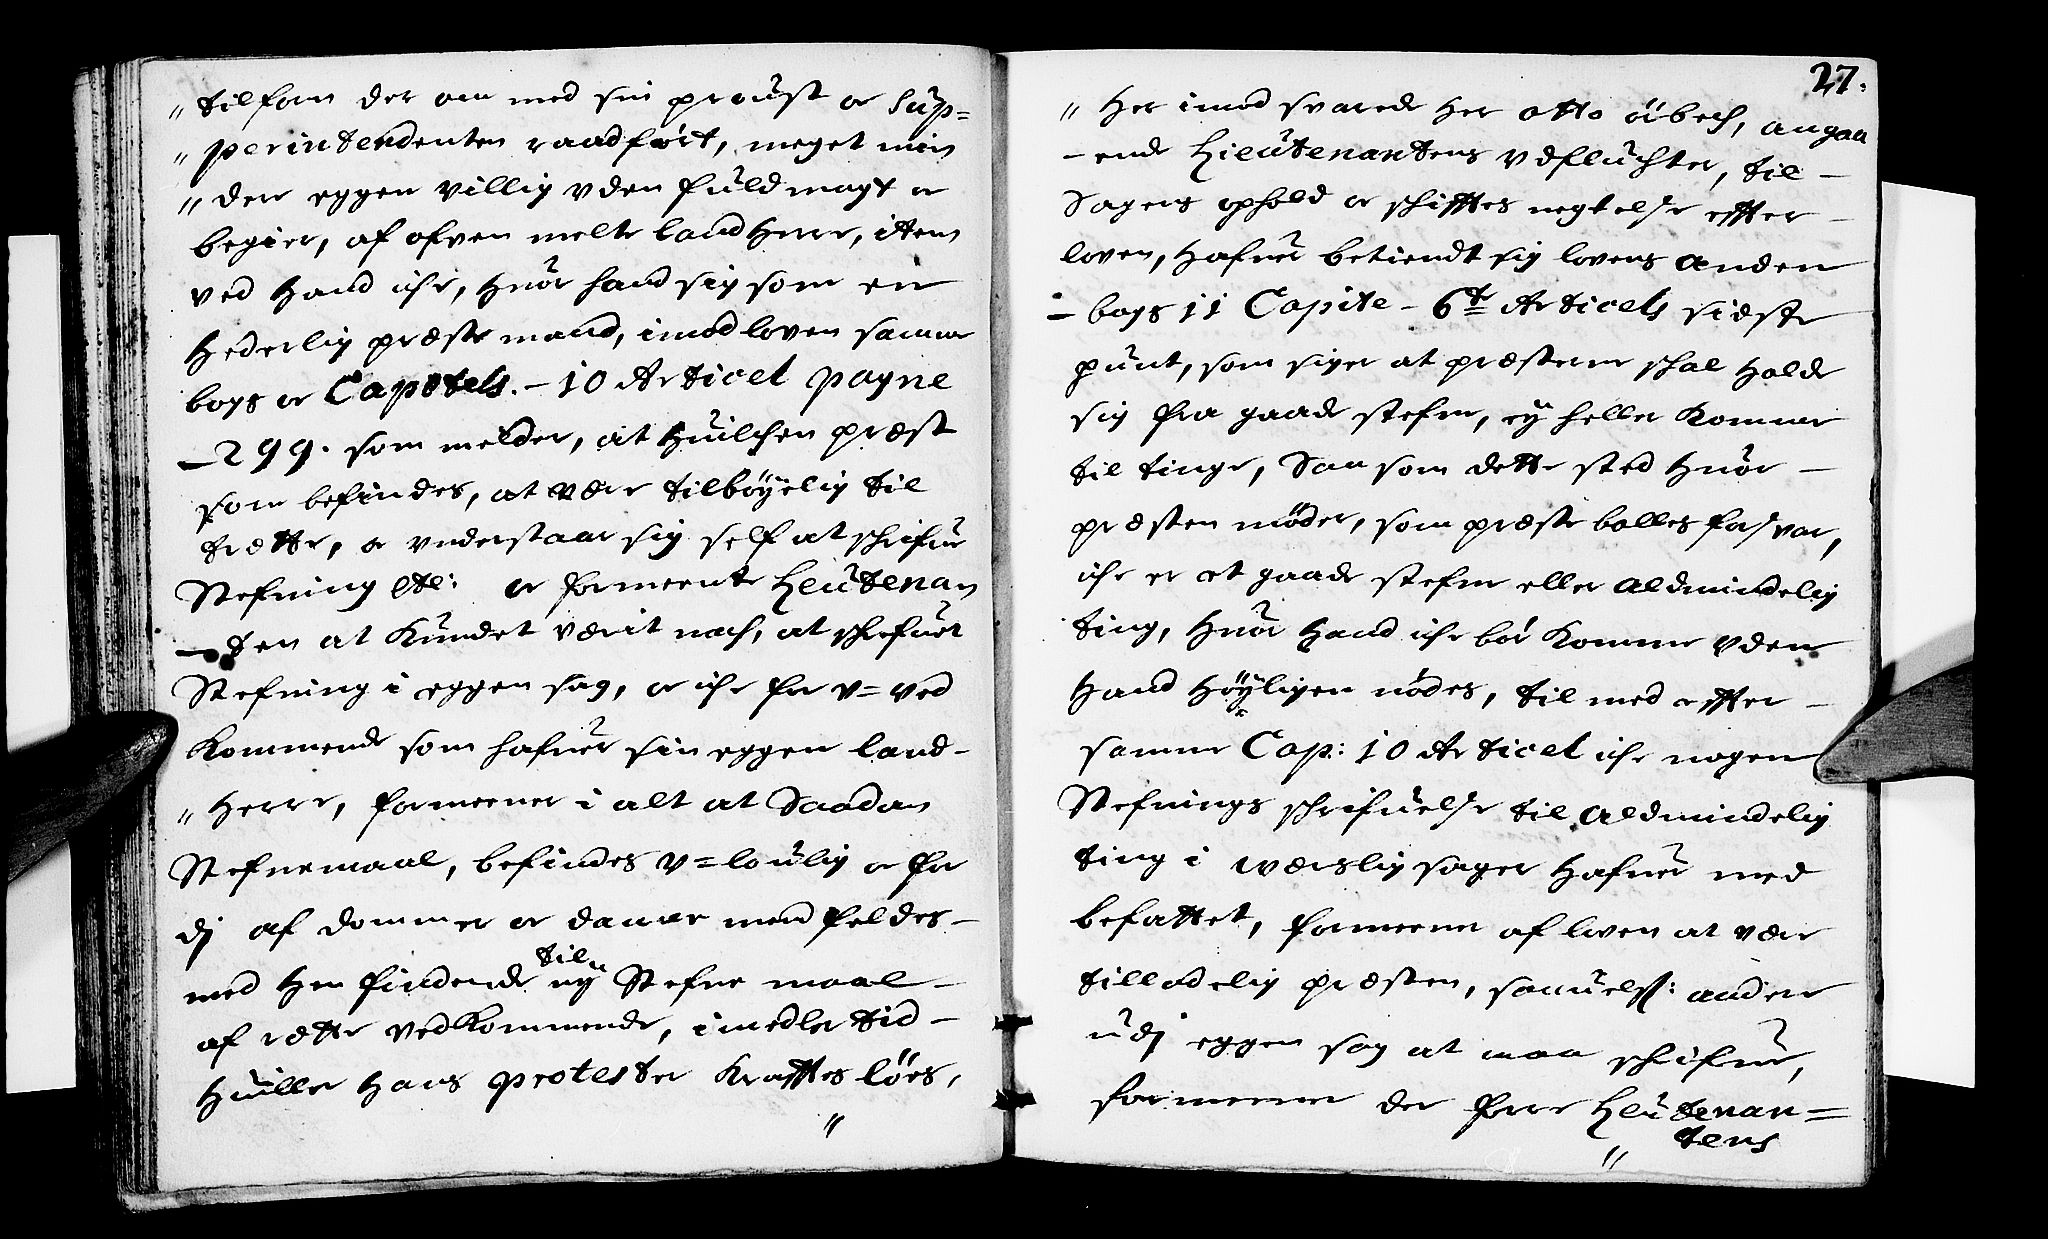 " tilforn der om med sin proust oc Sup=
" perintendenten raadført, meget min
" dere eggen villig vden fuldmagt oc
begier, af ofven melte land Herre, item
ved Hand iche, Huor hand sig som en
Hederlig præste mand, imod loven samme
bogs oc Capitels. - 10 Articel pagne
- 299. som melder, at Huilchen præst
som befindes, at være tilbøyelig til
trætte, oc vnderstaar sig self at schrifue
Stefning etc: oc formeente Leutenan
- ten at Kundet værit noch, at schrefuet
Stefning i eggen sag, oc iche for v= ved
Kommende som hafuer sin eggen land-
" Herre, formeener i alt at Saadan
Stefnemaal, befindes v=loulig oc for
dj af dommer oc danne mend feldes -
med Hen findende til ny Stefne maal -
af rætte vedkommende, imedler tid -
Huiller Hans protester Krafftes løes,
"
27.
" Her imod svarede Her Otto übech, angaa
- ende Lieutenantens vdfluchter, til -
Sagens ophold oc schifftes negtelse effter -
loven, Hafuer betiendt sig lovens Anden
- bogs 11 Capite - 6te Articels sidste
punt, som siger at præsterne schal Holde
sig fra gaade stefne, ey heller Komme
til tinge, Saa som dette sted Huor -
præsten møder, som præste bolles forsvar,
iche er et gaade stefne eller Aldmindelig
ting, Huor Hand iche bør Komme vden
Hand Høyligen nødes, til med effter -
samme Cap: 10 Articel iche nogen
Stefnings schrifuelse til Aldmindelig
ting i værslig sager Hafuer med
befattet, formeene af loven at være
tilladelig præsten, saauelsom andere
udj eggen sag at maa schrifue,
formeener der forre Leutenan=
" tens